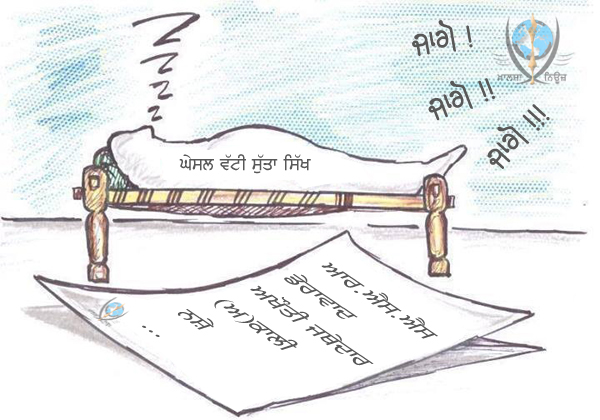 ਜਾਗੋ !
ਜਾਗੋ !!
ਜਾਗੋ !!!
ਖ਼ਾਲਸਾ ਨਿਊਜ਼
ਘੇਸਲ ਵੱਟੀ ਸੁੱਤਾ ਸਿੱਖ
ਆਰ.ਐਸ.ਐਸ
ਡੇਰਾਵਾਦ
ਅਖੌਤੀ ਜਥੇਦਾਰ
(ਅ)ਕਾਲੀ
ਨਸ਼ੇ
...